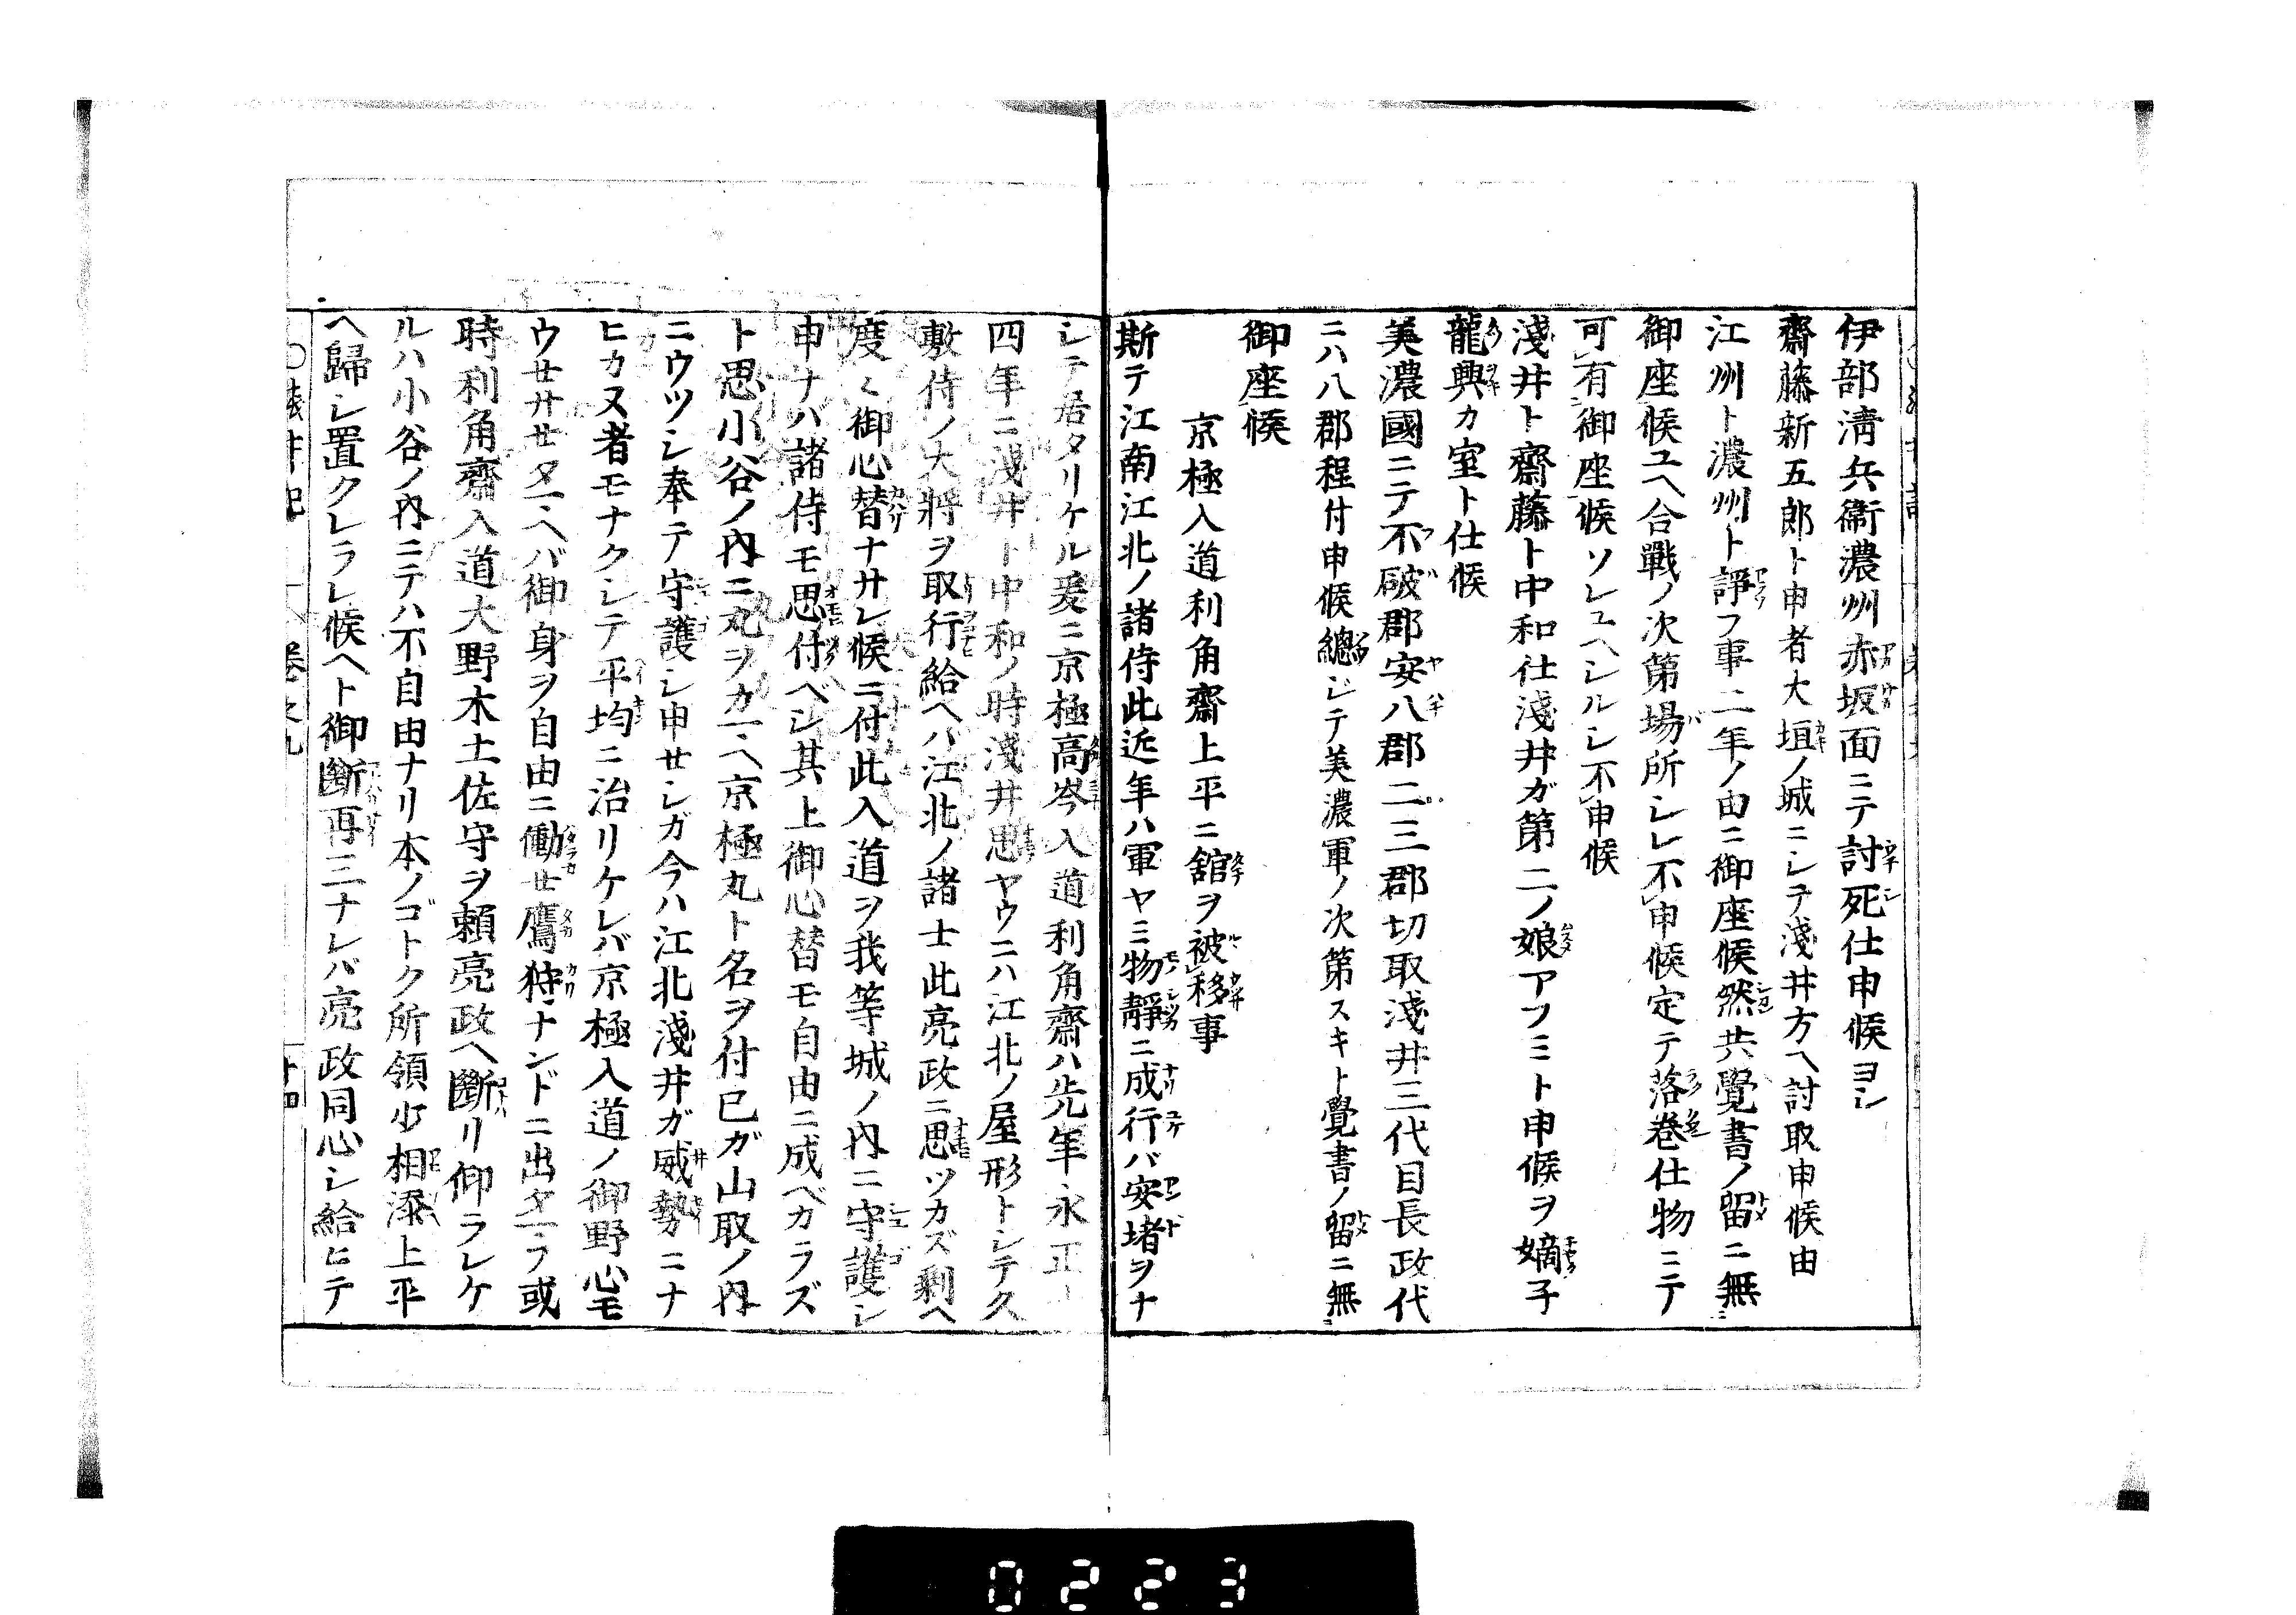 伊部淸兵衞濃州赤坂面ニテ討死仕申候ヨシ
齋藤新五郎ト申者大垣ノ城ニシテ淺井方ヘ討取申候由
江州ト濃州ト諍フ事二年ノ由ニ御座候然共覺書ノ留ニ無
御座候ユヘ合戰ノ次第場所シレ不申候定テ落巻仕物ニテ
可有御座候ソレユヘシルシ不申候
淺井ト齋藤ト中和仕淺井ガ第二ノ娘アフミト申候ヲ嫡子
龍興カ室ト仕候
美濃國ニテ不破郡安八郡二三郡切取淺井三代目長政代
ニハ八郡程付申候總ジテ美濃軍ノ次第スキト覺書ノ留ニ無
御座候
京極入道利角齋上平ニ舘ヲ被移事
斯テ江南江北ノ諸侍此近年ハ軍ヤミ物靜ニ成行バ安堵ヲナ
シテ居タリケル爰ニ京極高岑入道利角齋ハ先年永正十
四年ニ淺井ト中和ノ時淺井思ヤウニハ江北ノ屋形トシテ久
敷侍ノ大將ヲ取行給ヘバ江北ノ諸士此亮政ニ思ツカズ剩ヘ
度々御心替ナサレ候ニ付此入道ヲ我等城ノ內ニ守護シ
申ナバ諸侍モ思付ベシ其上御心替モ自由ニ成ベカラズ
ト思小谷ノ內ニ丸ヲカマヘ京極丸ト名ヲ付己ガ山取ノ內
ニウツシ奉テ守護シ申セシガ今ハ江北淺井ガ威勢ニナ
ビカヌ者モナクシテ平均ニ治リケレバ京極入道ノ御野心モ
ウセサセタマヘバ御身ヲ自由ニ働セ鷹狩ナンドニ出タマフ或
時利角齋入道大野木土佐守ヲ頼亮政ヘ斷リ仰ラレケ
ルハ小谷ノ內ニテハ不自由ナリ本ノゴトク所領少相添上平
ヘ歸シ置クレラレ候ヘト御斷再三ナレバ亮政同心シ給ヒテ
卷之九
十四
0223